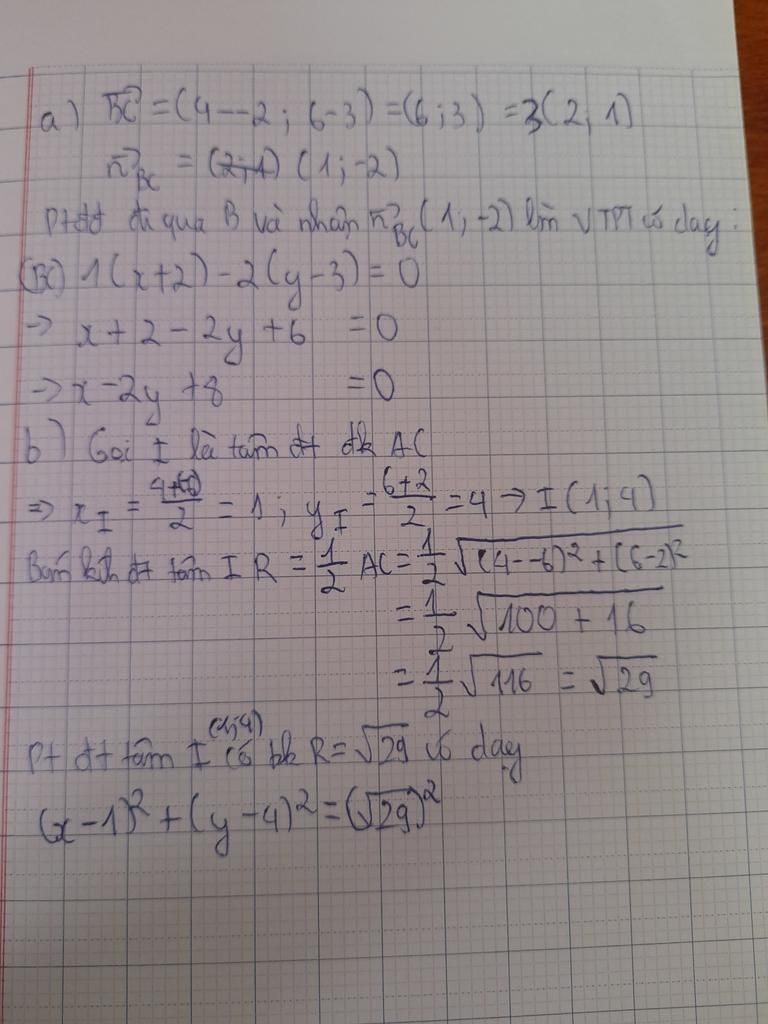 a) BC = (4--2; 6-3) = (6;3) = 3(2;1)
n BC = (2;1) (1;-2)
Ptđt đi qua B và nhận n BC (1;-2) làm VTPT có dạng:
(BC) 1(x+2)-2(y-3) = 0
→ x+2-2y+6 = 0
→ x-2y+8 = 0
b) Gọi I là tâm đt đk AC
⇒ x_I = 4+(-6)/2 = 1; y_I = 6+2/2 = 4 → I(1;4)
Bán kính đt tâm I R = 1/2 AC = 1/2 √((4--6)²+(6-2)²
= 1/2 √100+16
= 1/2 √116 = √29
Pt đt tâm I (1;4) có bk R = √29 có dạng
(x-1)²+(y-4)² = (√29)²